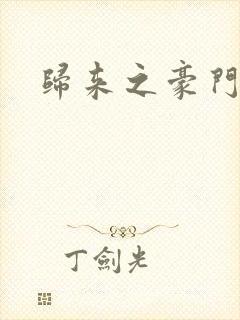 歸來之豪門
丁劍光